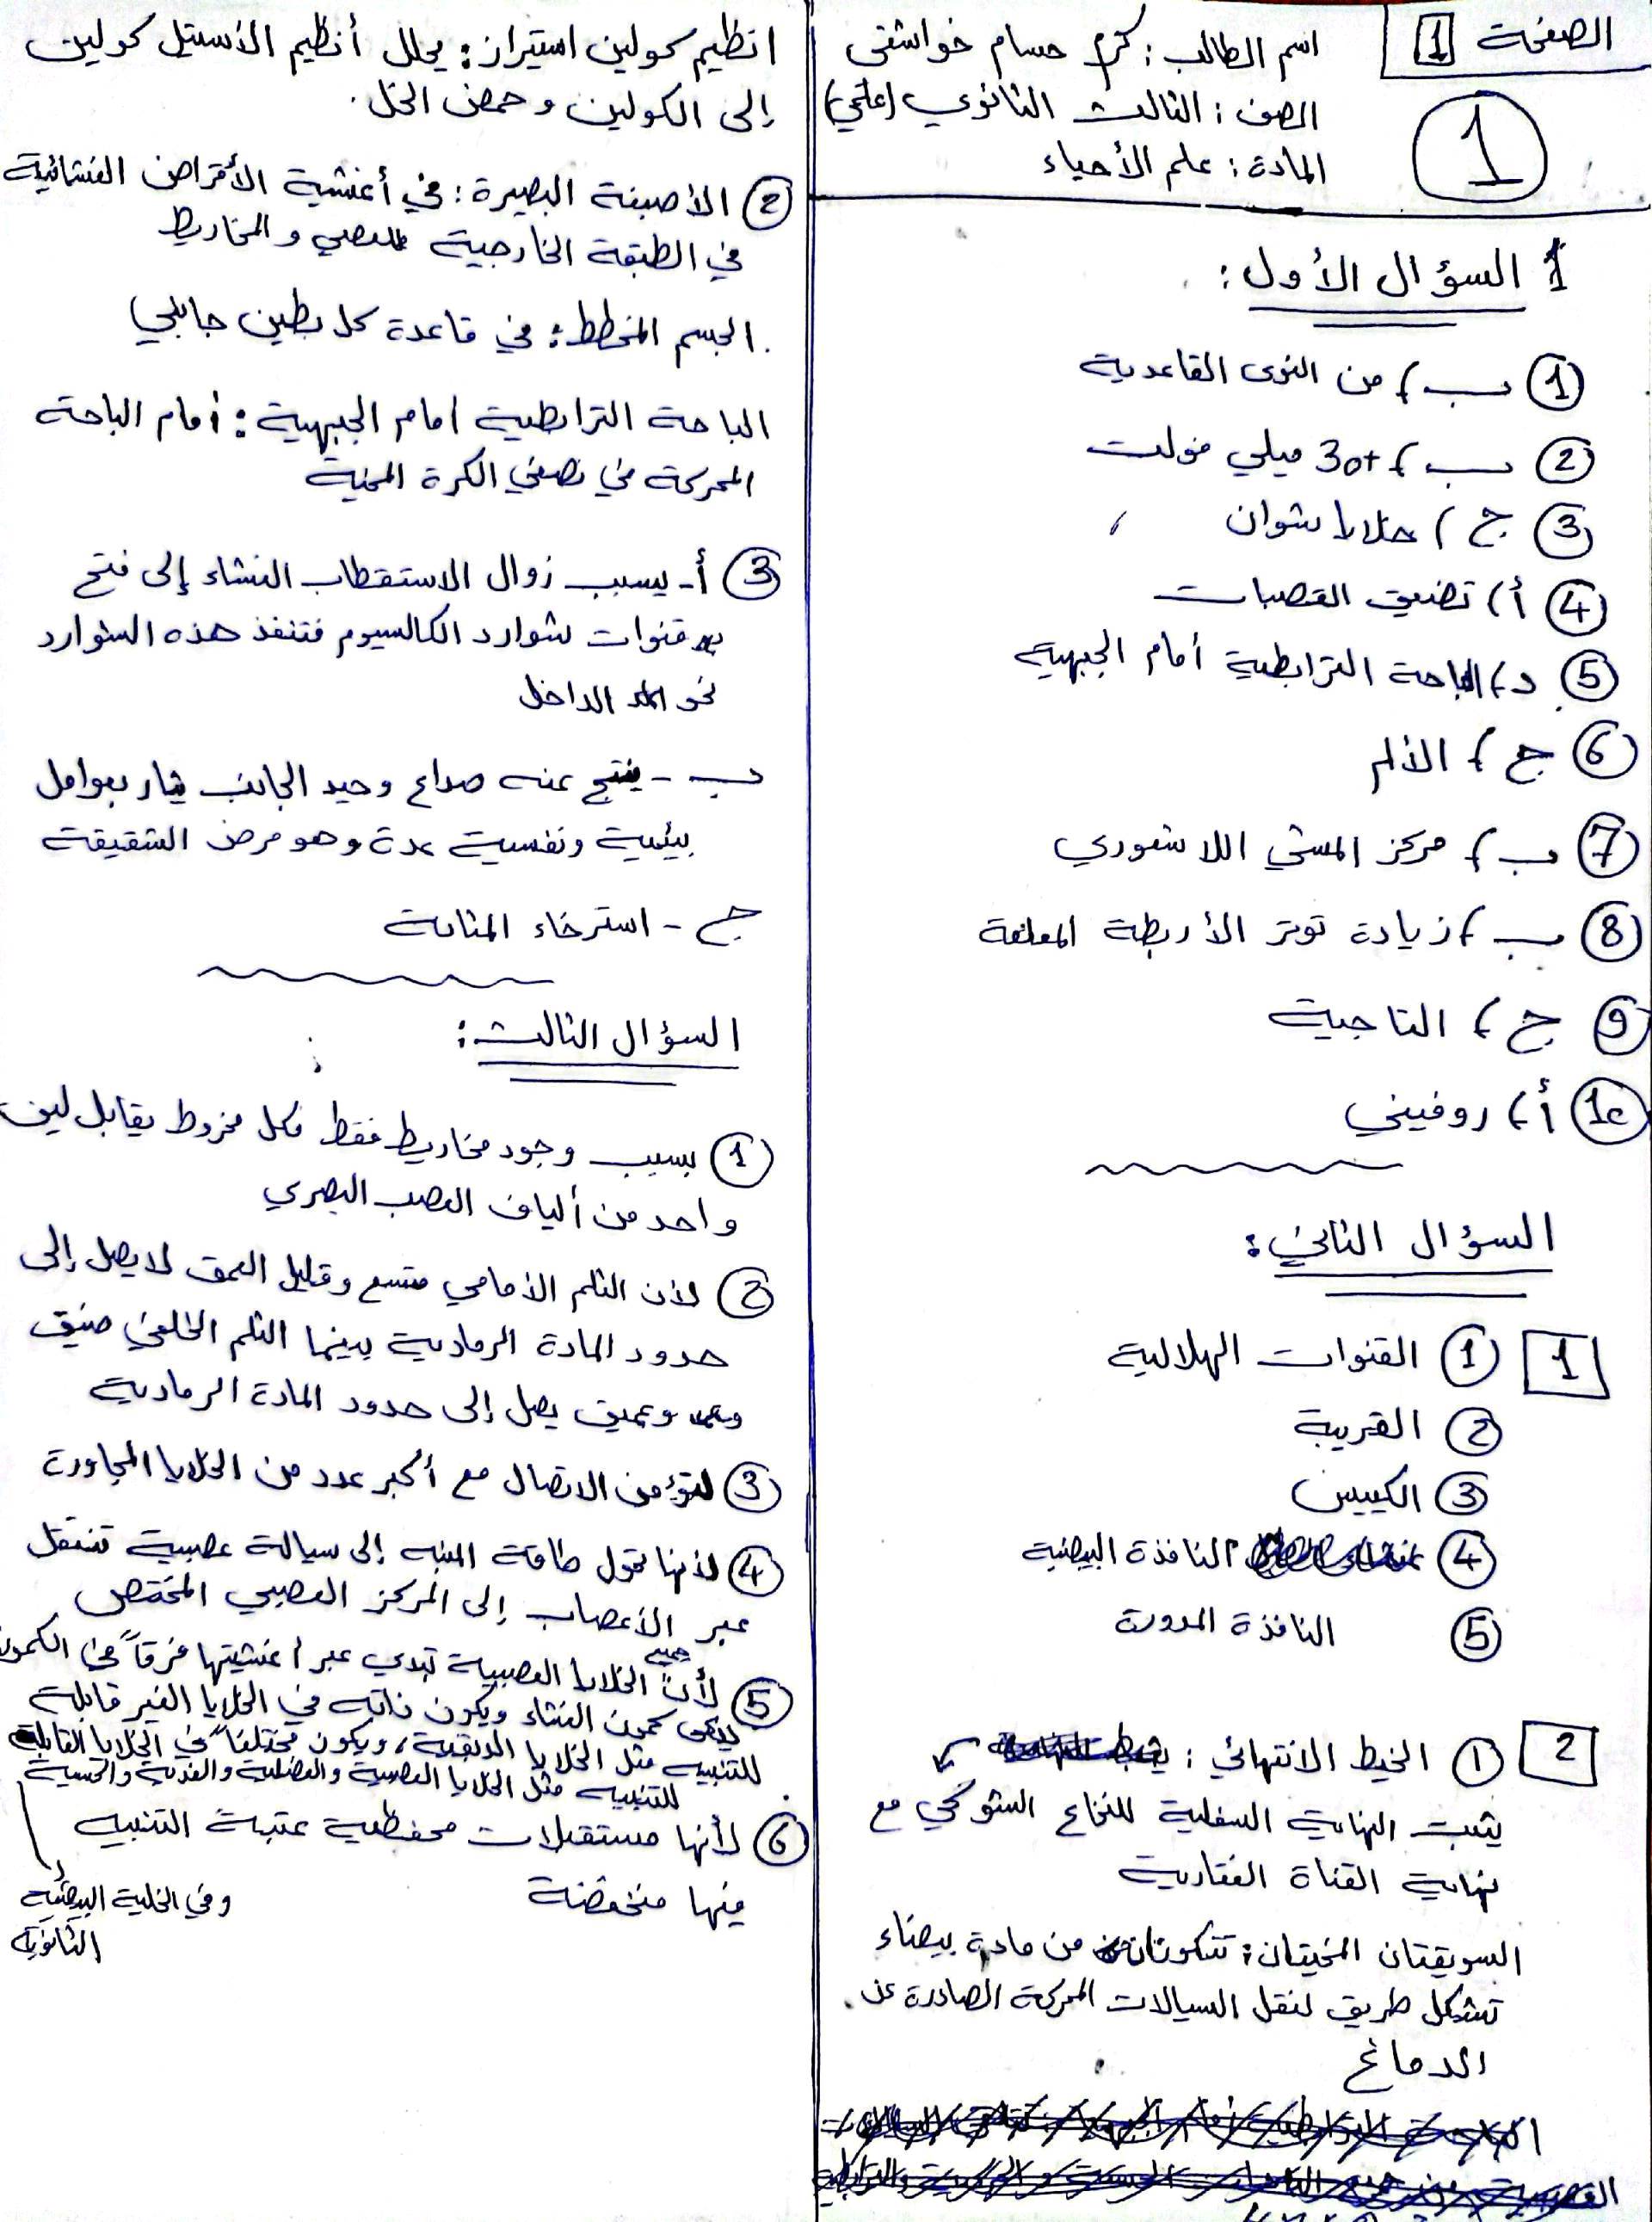 الصفحة 1
1
اسم الطالب : كرم حسام خواشقي
الصف : الثالث الثانوي (علمي)
المادة : علم الأحياء
1 السؤال الأول :
1 ب) من النوى القاعدية
2 ب) 30+ ميلي فولت
3 ج) خلايا شوان
4 أ) تضيق القصبات
5 د) الباحة الترابطية أمام الجبهية
6 ج) الألم
7 ب) مركز المشي اللاشعوري
8 ب) زيادة توتر الأربطة المعلقة
9 ج) التاجية
10 أ) روفيني
السؤال الثاني :
1 1 القنوات الهلالية
2 القريبة
3 الكييس
4 النافذة البيضية
5 النافذة المدورة
2 1 الخيط الانتهائي :
يثبت النهاية السفلية للنخاع الشوكي مع
نهاية القناة الفقارية
السويقتان المخيتان : تتكونان من مادة بيضاء
تشكل طريق لنقل السيالات المحركة الصادرة عن
الدماغ
انظيم كولين استيراز : يحلل أنظيم الأستيل كولين
إلى الكولين وحمض الخل .
2 الأصبغة البصيرة : في أغشية الأقراص الغشائية
في الطبقة الخارجية للعصي والمخاريط
الجسم المخطط : في قاعدة كل بطين جانبي
الباحة الترابطية امام الجبهية : أمام الباحة
المحركة في نصفي الكرة المخية
3 أ- يسبب زوال الاستقطاب الغشاء إلى فتح
قنوات لشوارد الكالسيوم فتنفذ هذه الشوارد
نحو الداخل
ب - ينتج عنه صداع وحيد الجانب يثار بعوامل
بيئية ونفسية عدة وهو مرض الشقيقة
ج - استرخاء المثانة
السؤال الثالث :
1 بسبب وجود مخاريط فقط فكل مخروط يقابل ليف
واحد من ألياف العصب البصري
2 لأن الثلم الأمامي متسع وقليل العمق لا يصل إلى
حدود المادة الرمادية بينما الثلم الخلفي ضيق
وعميق يصل إلى حدود المادة الرمادية
3 لتؤمن الاتصال مع أكبر عدد من الخلايا المجاورة
4 لأنها تحول طاقة المنبه إلى سيالة عصبية تنتقل
عبر الأعصاب إلى المركز العصبي المختص
5 لأن جميع الخلايا العصبية تبدي عبر اغشيتها فرقاً في الكمون
يدعى كمون الغشاء ويكون ثابته في الخلايا الغير قابلة
للتنبيه مثل الخلايا الدبقية، ويكون مختلفاً في الخلايا القابلة
للتنبيه مثل الخلايا العصبية والعضلية والغدية والحسية
وفي الخلية البيضية
الثانوية
6 لأنها مستقبلات محفظية عتبة التنبيه
فيها منخفضة